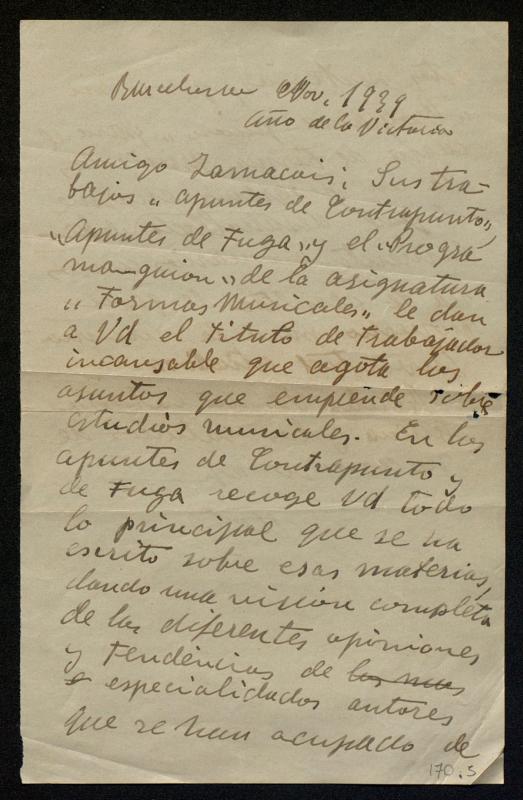 Barcelona Nov. 1939
Año de la Victoria
Amigo Zamacois: Sus tra-
bajos „ apuntes de Contrapunto",
„Apuntes de Fuga„ y el „Progra
ma-guion„ de la asignatura
„ Formas Musicales„ le dan
a Vd el titulo de trabajador
incansable que agota los
asuntos que emprende sobre
estudios musicales. En los
apuntes de Contrapunto y
de Fuga recoge Vd todo
lo principal que se ha
escrito sobre esas materias,
dando una visión completa
de las diferentes opiniones
y tendencias de los mas
especialidados autores
que se han ocupado de
170.5